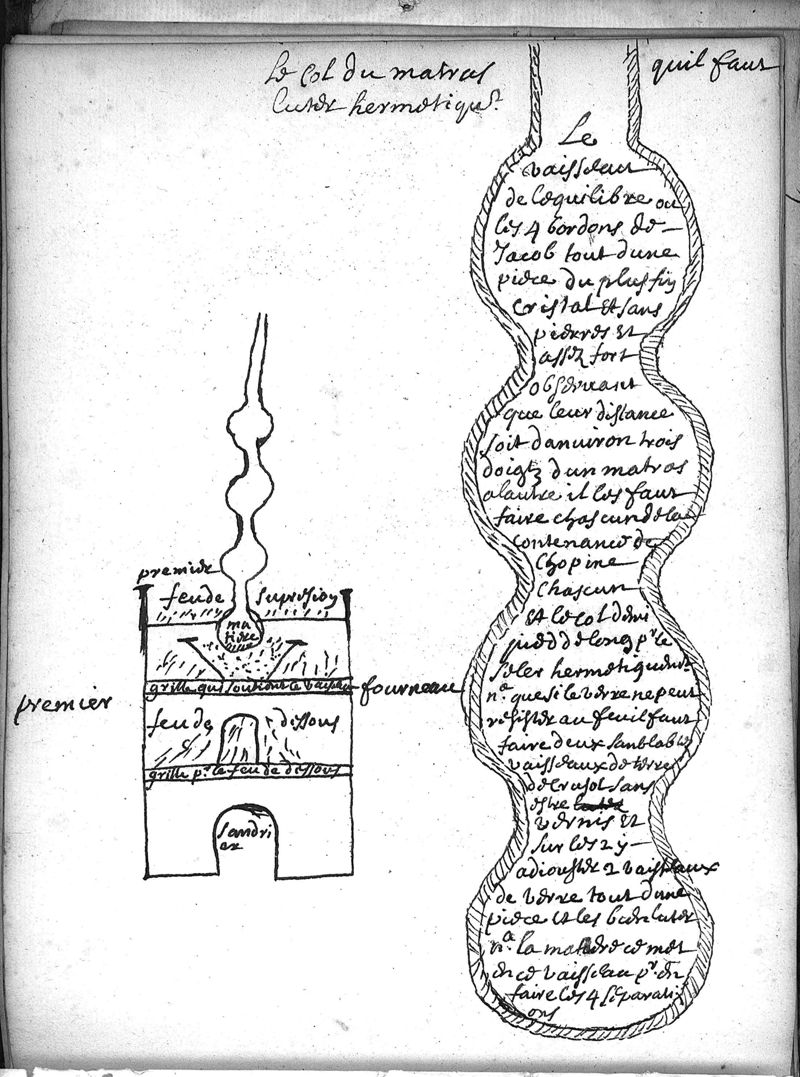 Le Col du matras quil faut
luter hermetiqut.
Le
vaisseau
de lequilibre ou
les 4 bordons de
Jacob tout dune
piece du plus fin
cristal et sans
pierres et
assez fort
observant
que leur distance
soit danuiron trois
doigtz dun matras
alautre il les faut
faire chascun de la
contenance de
Chopine
Chascun
et le col demi
pied de long pr le
seler hermetiquemt.
na. que si le verre ne peut
resister au feu il faut
faire deux sanblables
vaisseaux de terre
de Crusol sans
estre
vernis et
sur les 2 y
adiouster 2 vaisseaux
de verre tout dune
piece et les bien luter
na. la matiere ce met
en ce vaisseau pr. en
faire les 4 separati
ons
premier
feu de supresion
matiere
grille qui soutient le vaisseau
premier fourneau
feu de dessous
grille pr. le feu de dessous
sandri
er